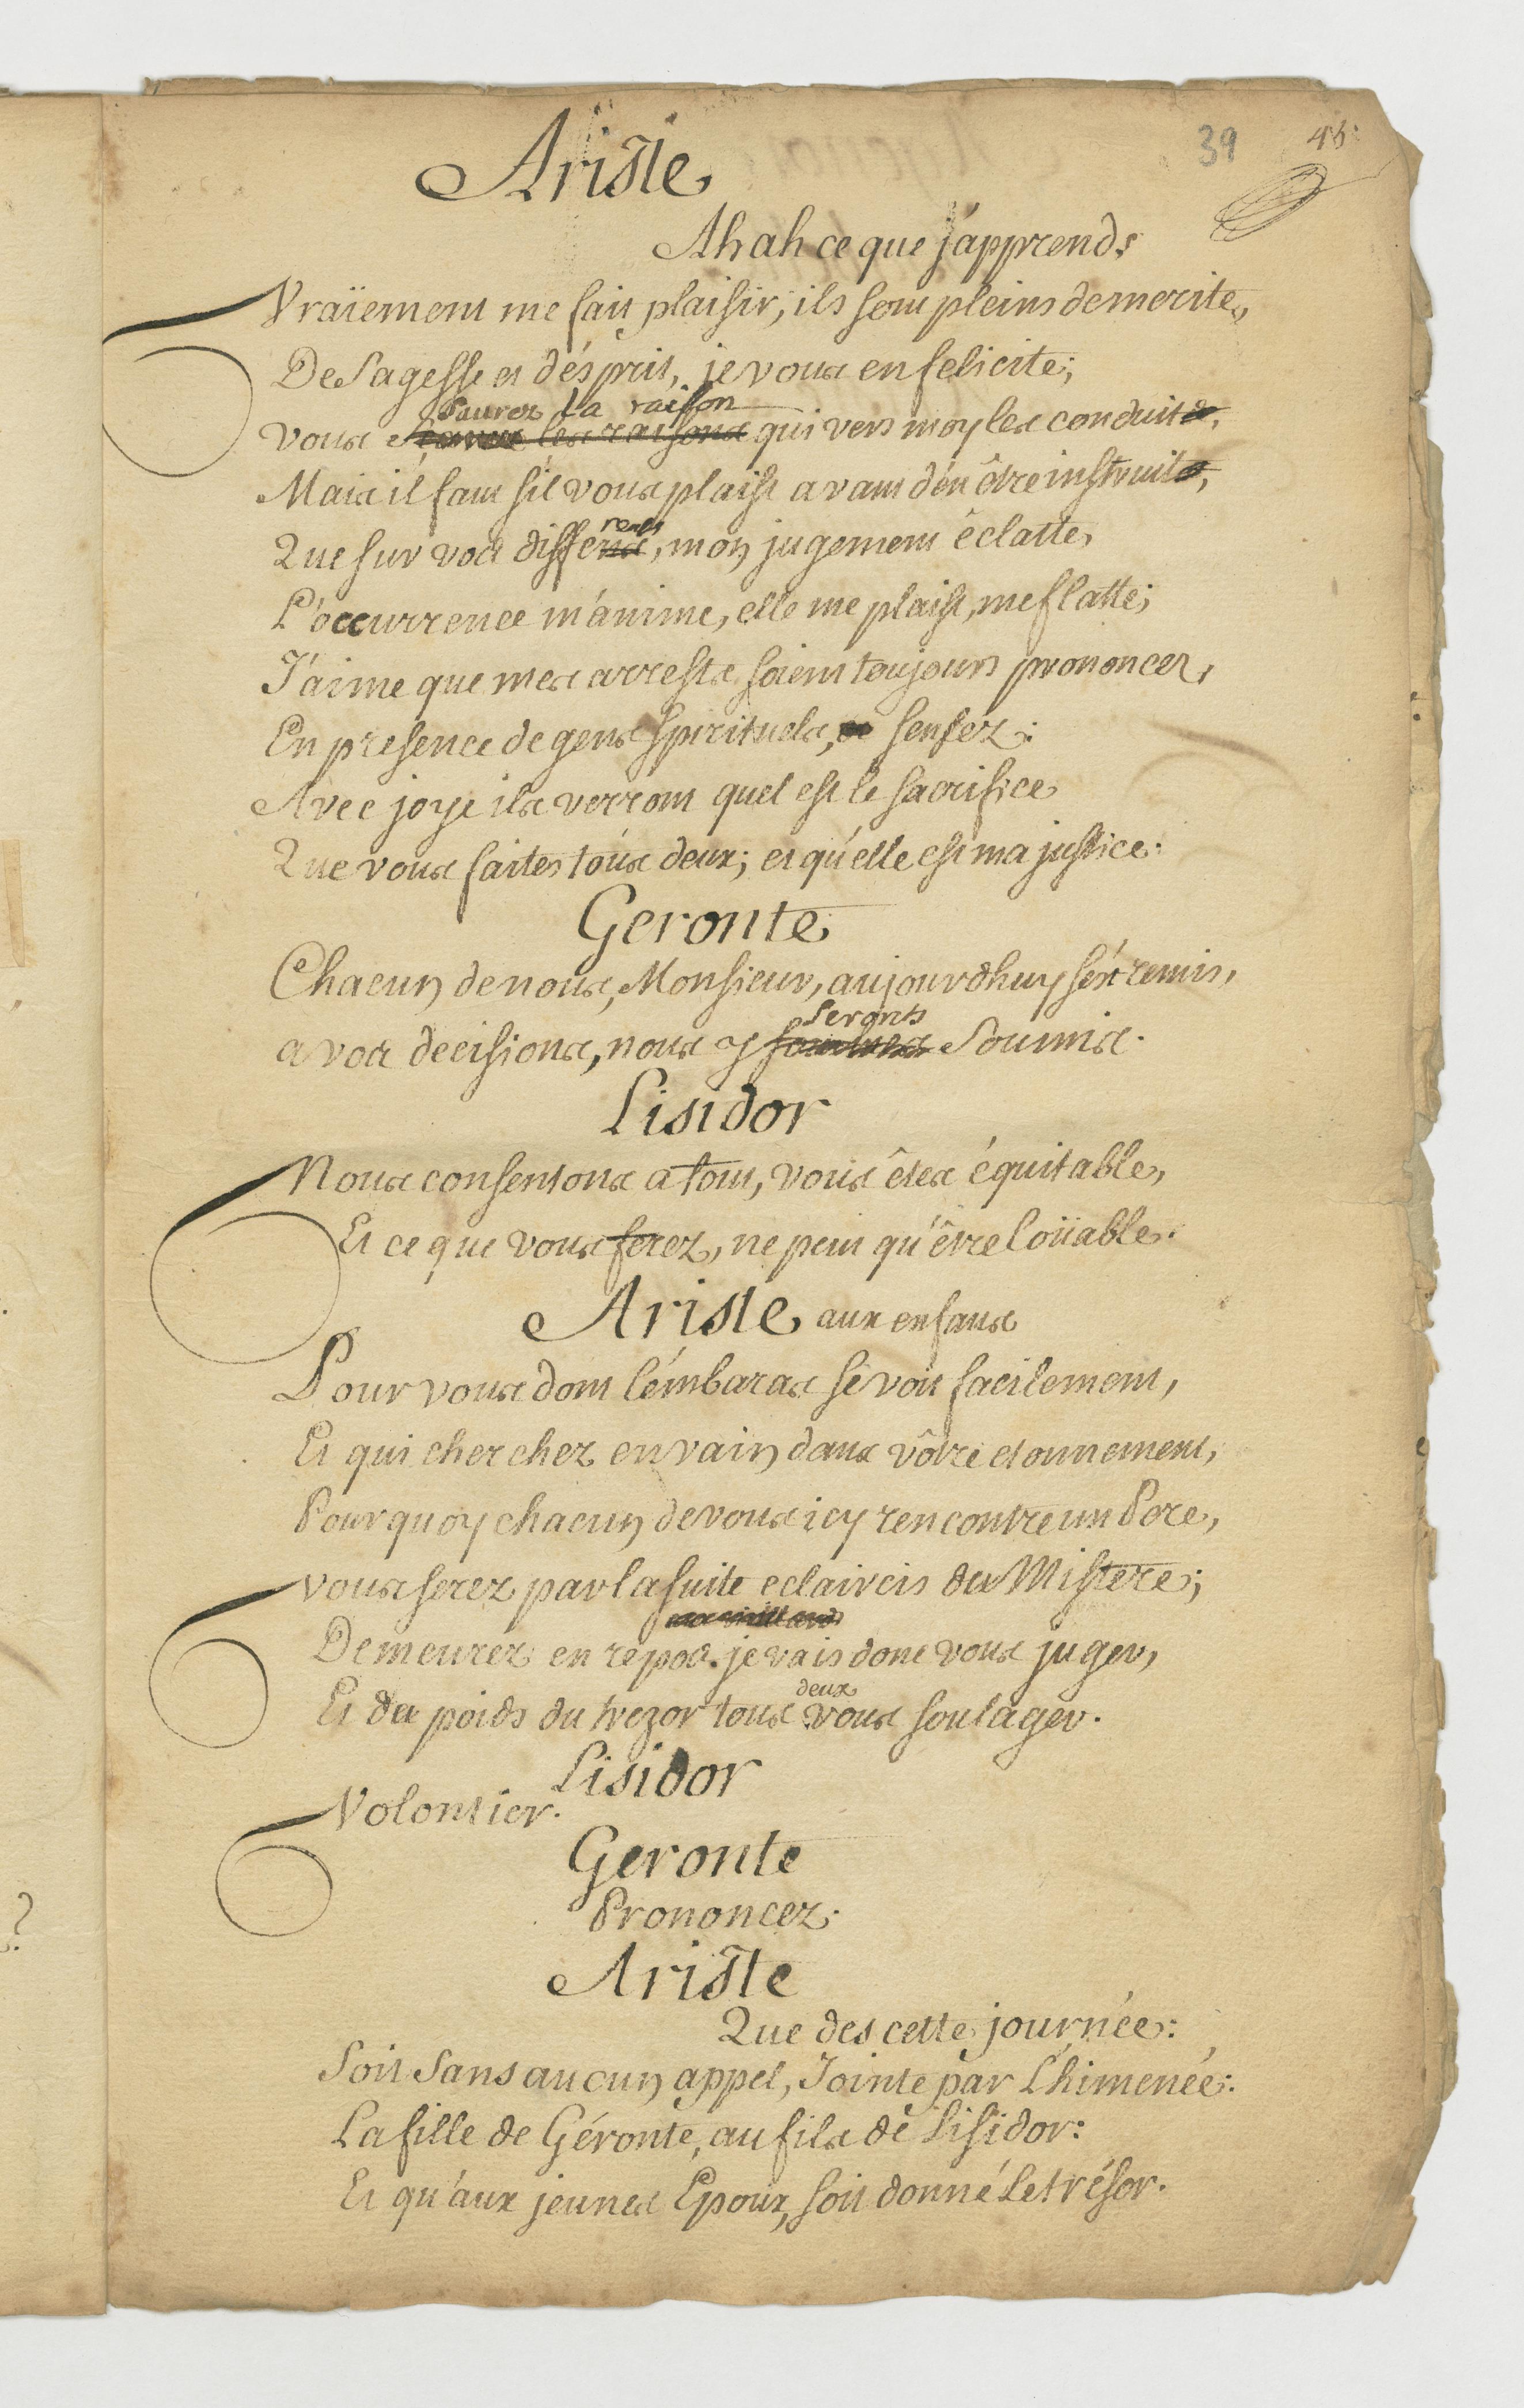 39 45
Ariste
Ah ah ce que j'apprends
Vraïement me fait plaisir, ils sont pleins de merite,
De Sagesse et d'ésprit, je vous en felicite;
Saurez La raison
vous sçaurez les raisons qui vers moy les conduits,
Mais il faut s'il vous plaist avant d'en être instruits,
rents
Que sur vos differens, mon jugement éclatte,
L'occurrence m'anime, elle me plaist, me flatte;
J'aime que mes arrests soient toujours prononcez,
En presence de gens spirituels, et sensez:
Avec joye ils verront quel est le sacrifice
Que vous faites tous deux; et qu'elle est ma justice:
Geronte
Chacun de nous, Monsieur, aujourdhuy s'est remis,
Seronts
a vos decisions, nous y sommes Soumis.
Lisidor
Nous consentons a tout, vous êtes équitable,
Et ce que vous ferez, ne peut qu'être loüable.
Ariste aux enfans
Pour vous dont l'émbaras se voit facilement,
Et qui cherchez en vain dans vôtre etonnement,
Pourquoy chacun de vous icy rencontre un Pere,
vous serez par la suite eclaircis du Mistere;
Demeurez en repos. je vais donc vous juger,
deux
Et du poids du trezor tous vous soulager.
Lisidor
Volontier.
Geronte
Prononcez.
Ariste
Que des cette journée:
Soit Sans aucun appel, Jointe par L'himenée:
La fille de Géronte, au fils de Lisidor:
Et qu'aux jeunes Epoux, soit donné Le trésor.